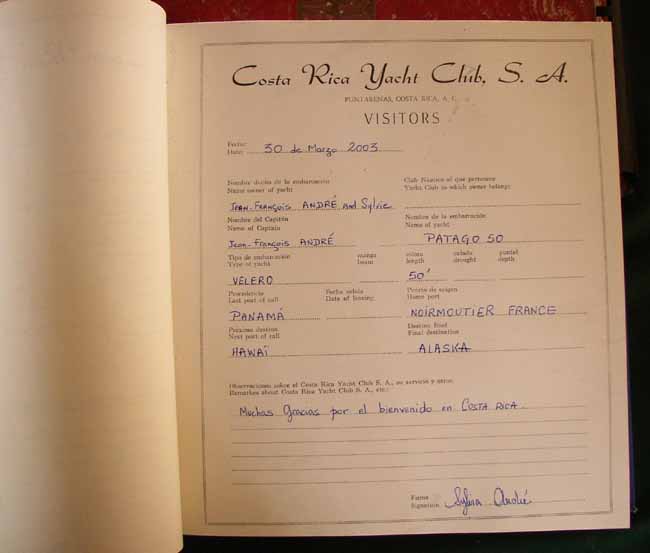 Costa Rica Yacht Club, S. A.
PUNTARENAS, COSTA RICA, A. C.
VISITORS
Fecha:
Date: 30 de Marzo 2003
Nombre dueño de la embarcación Club Náutico al que pertenece
Name owner of yacht Yacht Club to which owner belongs
JEAN-FRANÇOIS ANDRÉ and Sylvie
Nombre del Capitán Nombre de la embarcación
Name of Captain Name of yacht
Jean-François ANDRÉ PATAGO 50
Tipo de embarcación manga eslora calado puntal
Type of yacht beam length drought depth
VELERO 50'
Procedencia Fecha salida Puerto de origen
Last port of call Date of leaving Home port
PANAMÁ NOIRMOUTIER FRANCE
Próximo destino Destino final
Next port of call Final destination
HAWAÏ ALASKA
Observaciones sobre el Costa Rica Yacht Club S. A., su servicio y otros.
Remarks about Costa Rica Yacht Club S. A., etc.:
Muchas Gracias por el bienvenido en COSTA RICA.
Firma
Signature Sylvie André